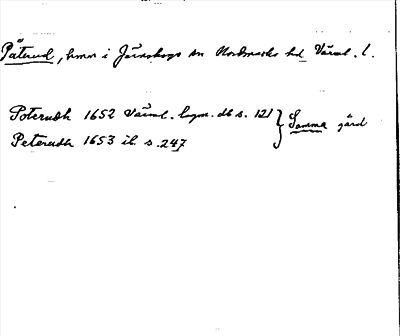 Päterud, hmn i Järnskogs sn Nordmarks hd Värml. l.
Poterudh 1652 Värml. lagm. db s. 121 } Samma gård
Peterudh 1653 ib. s. 247